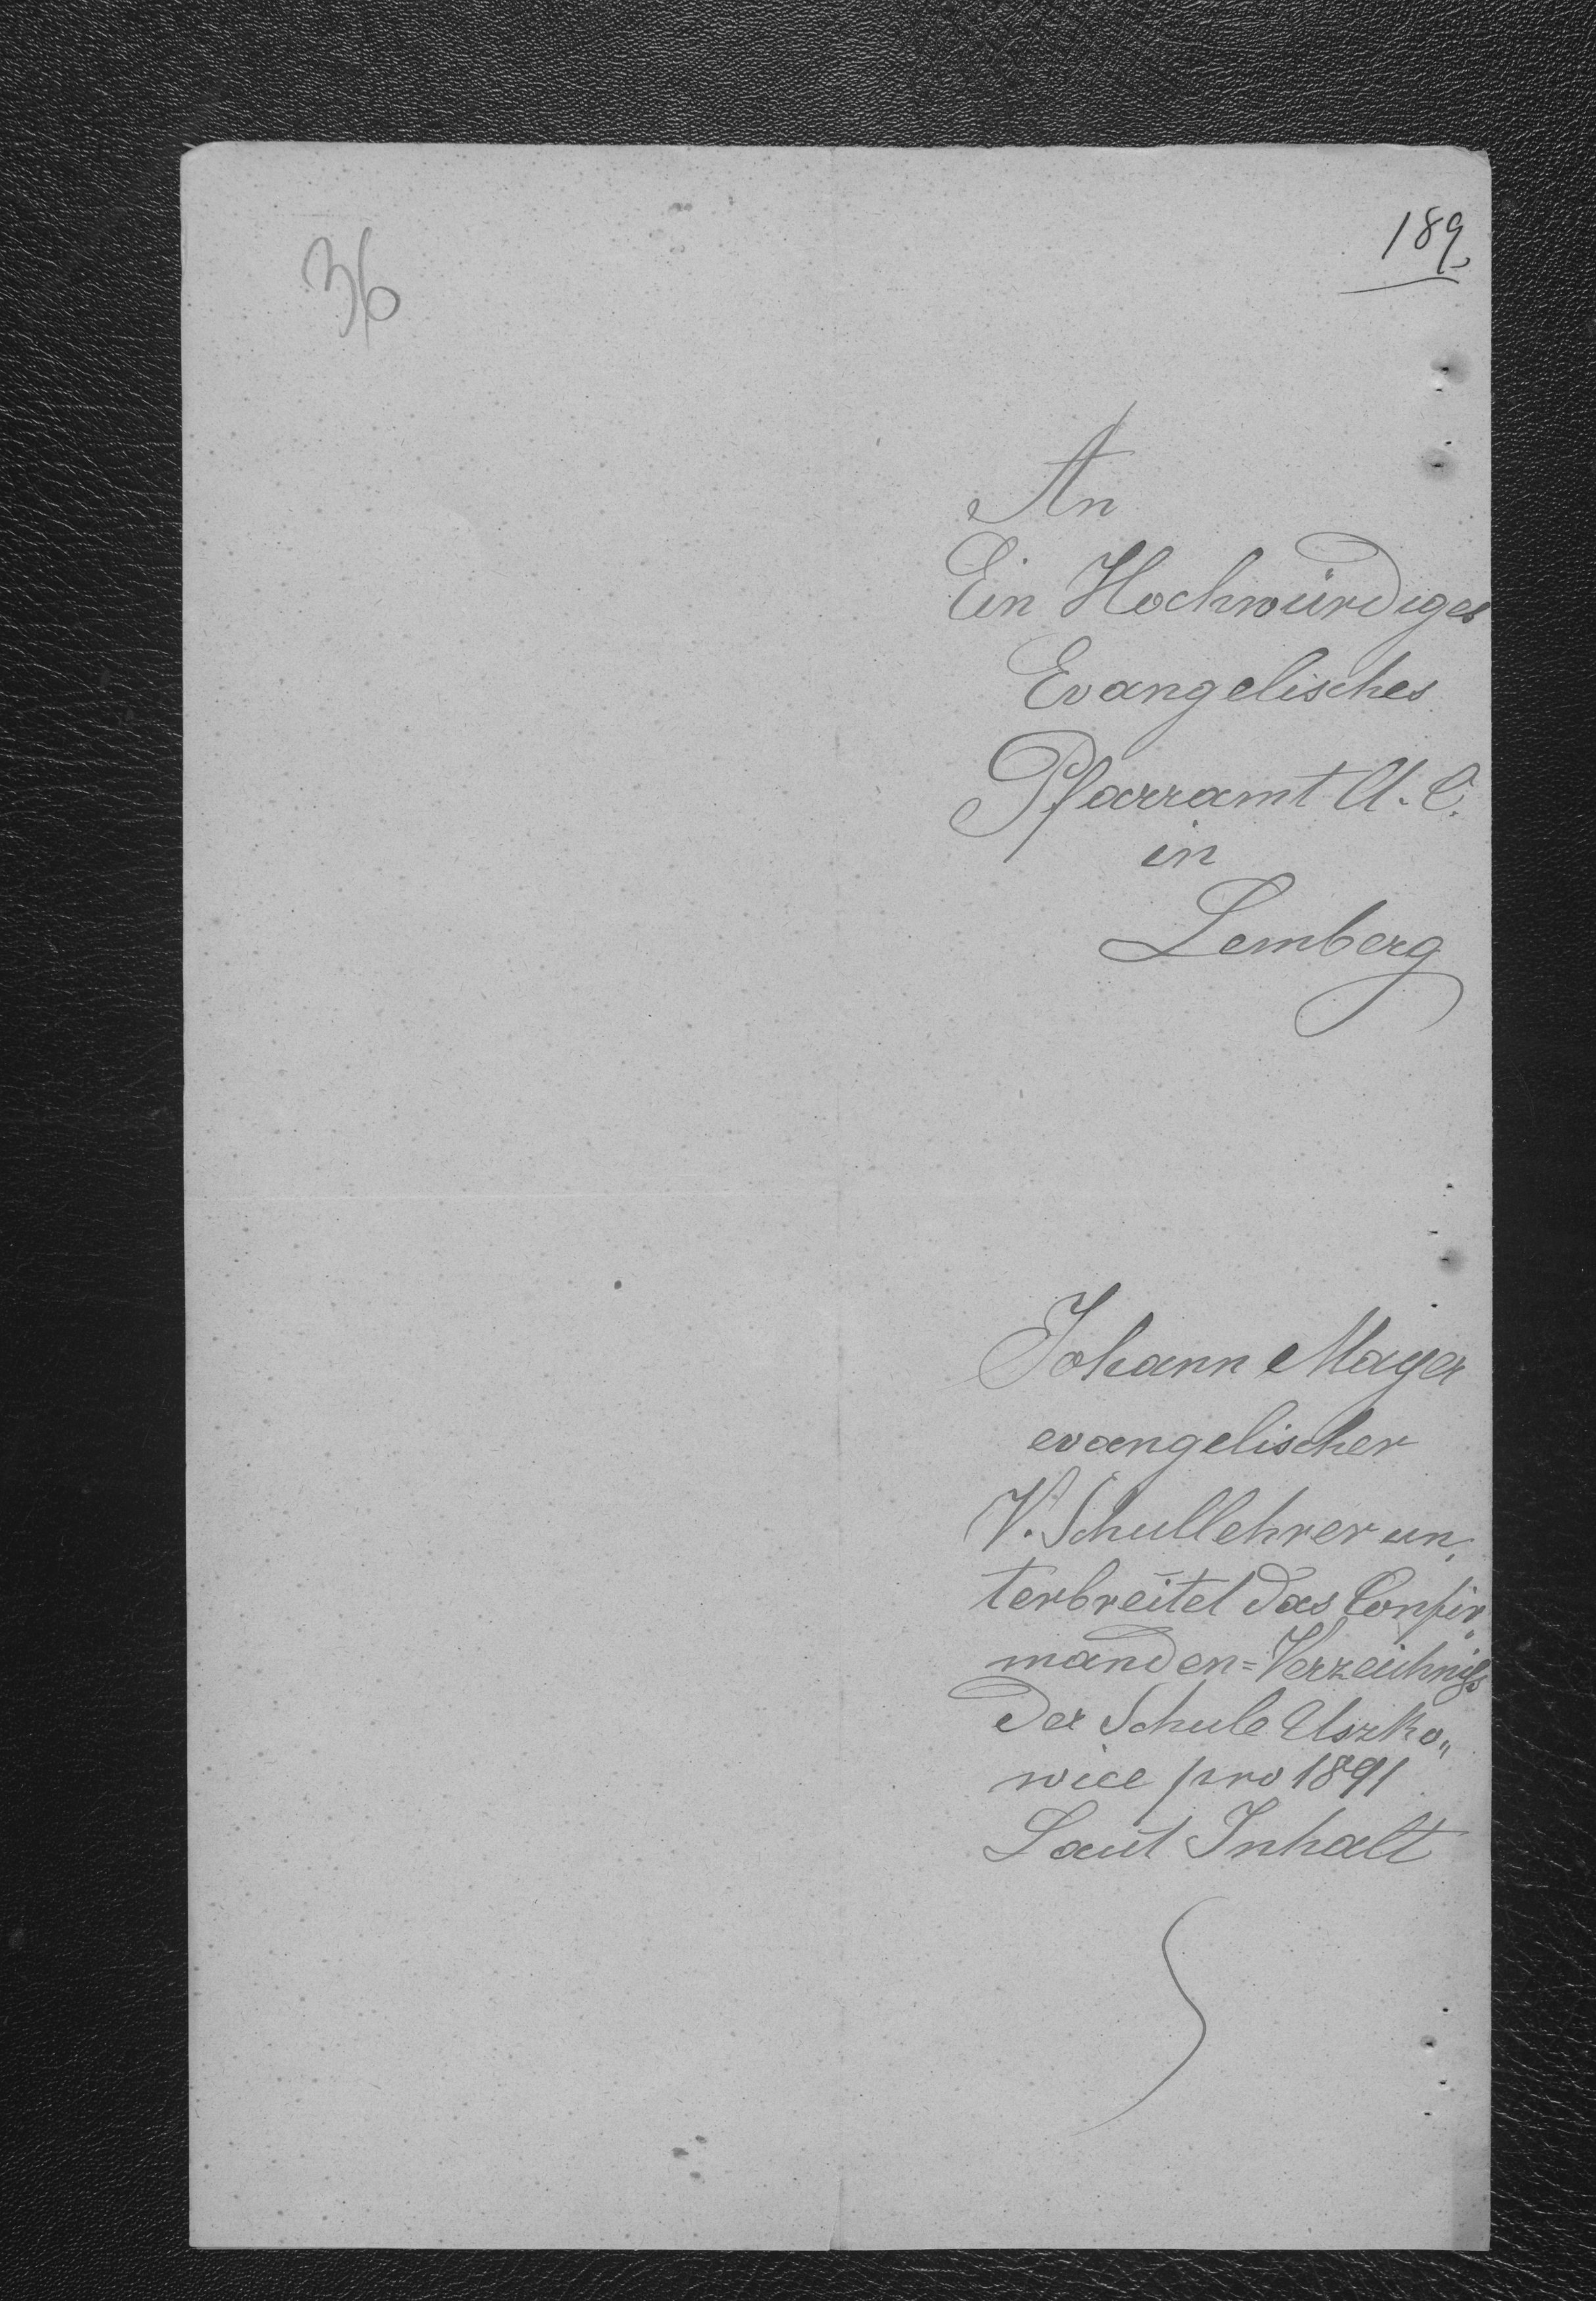 36
189
An
Ein Hochwürdiges
Evangelisches
Pfarramt A. C.
in
Lemberg
Johann Mayer
evangelischer
V. Schullehrer un„
terbreitet das Confir„
manden=Verzeichniß
der Schule Uszko„
wice pro 1891
Laut Inhalt